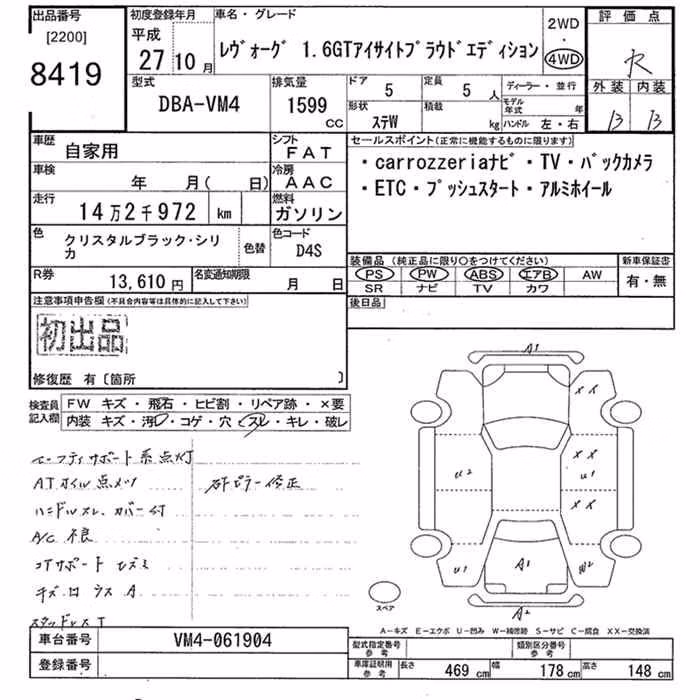 出品番号
[2200]
8419
初度登録年月
平成
27 10 月
車名・グレード
レヴォーグ 1.6GTアイサイトプラウドエディション
2WD
・
4WD
評価点
R
外装 内装
B B
型式
DBA-VM4
排気量
1599
CC
ドア
5
定員
5 人
形状
ステW
積載
kg
ディーラー・並行
モデル年式 年
ハンドル 左・右
車歴
自家用
シフト
FAT
車検
年 月( 日)
冷房
AAC
走行
14万2千972 km
燃料
ガソリン
色
クリスタルブラック・シリカ
色替
色コード
D4S
R券
13,610 円
名変通知期限
月 日
セールスポイント(正常に機能するものに限ります)
・carrozzeriaナビ・TV・バックカメラ
・ETC・プッシュスタート・アルミホイール
装備品 (純正品に限り○をつけてください)
PS PW ABS エアB AW
SR ナビ TV カワ
新車保証書
有・無
後日品
注意事項申告欄(不具合内容等は具体的に記入して下さい)
初出品
修復歴 有〔箇所 〕
検査員記入欄
FW キズ・飛石・ヒビ割・リペア跡・×要
内装 キズ・汚レ・コゲ・穴・スレ・キレ・破レ
セーフティサポート系点灯
ATオイル点メツ
ハンドルスレ カバー付
A/C 不良
キズ
A
A1
XX
U2
XX
U1
XX
U1
A1
W2
A2
スペア
A-キズ E-エクボ U-凹み W-補修跡 S-サビ C-腐食 XX-交換済
車台番号
VM4-061904
登録番号
型式指定番号
参考
類別区分番号
参考
車庫証明用
参考
長さ 469 cm 幅 178 cm 高さ 148 cm